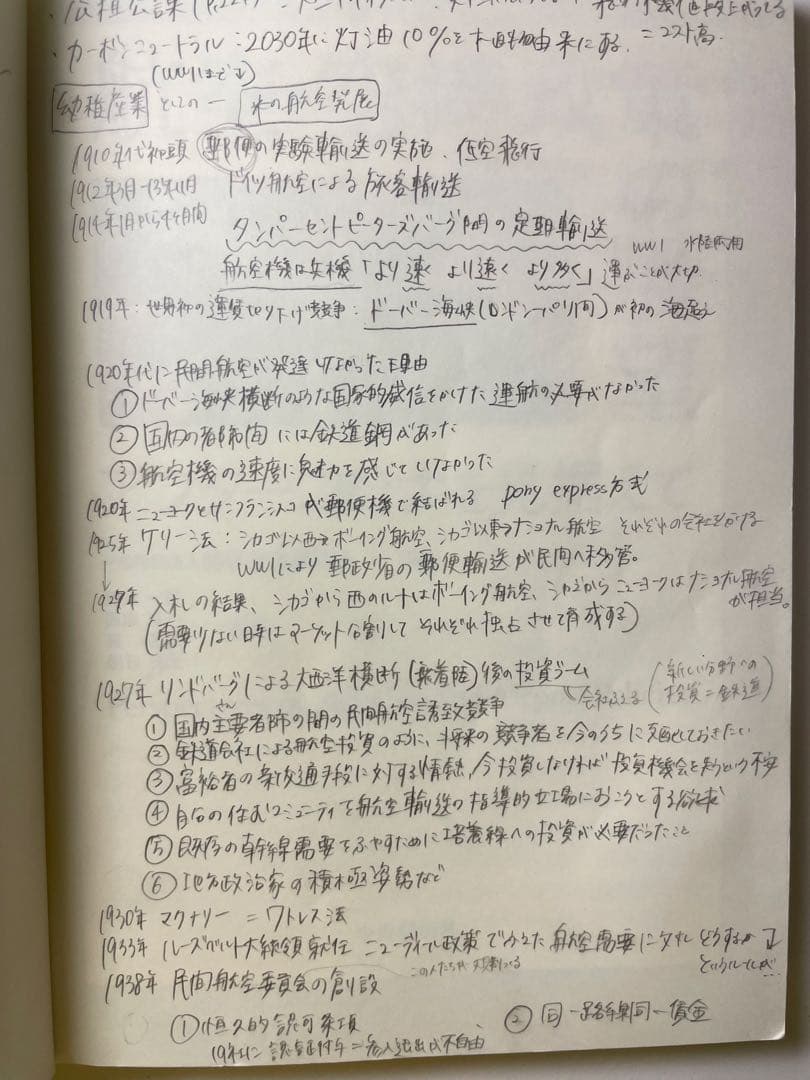 ・カーボンニュートラル：2030年に灯油10%を木質由来にする。＝コスト高
(WW1まで↓)
幼稚産業 としての ー 米の航空発展
1910年代初頭 郵便の実験輸送の実施、低空飛行
1912年3月-13年11月 ドイツ航空による旅客輸送
1914年1月から4ヶ月間
タンパーセントピーターズバーグ間の定期輸送
WW1 水陸両用
航空機は兵機「より速く より遠く より多く」運ぶことが大切
1919年：世界初の運賃切り下げ競争：ドーバー海峡(ロンドン-パリ間)が初の海越え
1920年代に民間航空が発達しなかった理由
① ドーバー海峡横断のような国家的威信をかけた運航の必要がなかった
② 国内の都市間には鉄道網があった
③ 航空機の速度に魅力を感じていなかった
1920年 ニューヨークとサンフランシスコが郵便機で結ばれる pony express方式
1925年 ケリー法：シカゴ以西→ボーイング航空、シカゴ以東→ナショナル航空 それぞれの会社を分ける
WW1により 郵政省の郵便輸送が民間へ移管。
↓
1927年 入札の結果、シカゴから西のルートはボーイング航空、シカゴからニューヨークはナショナル航空が担当。
(需要少ない時はマーケット分割してそれぞれ独占させて育成する)
1927年 リンドバーグさんによる大西洋横断(無着陸)後の投資ブーム
会社ふえる (新しい分野への投資＝鉄道)
① 国内主要都市の間の民間航空誘致競争
② 鉄道会社による航空投資のように、将来の競争者を今のうちに支配しておきたい
③ 富裕者の新交通手段に対する情熱、今投資しなければ投資機会を失うという不安
④ 自らの住むコミュニティを航空輸送の指導的立場におこうとする欲求
⑤ 既存の幹線需要をふやすために培養線への投資が必要だったこと
⑥ 地方政治家の積極姿勢など
1930年 マクナリー＝ワトレス法
1933年 ルーズベルト大統領就任 ニューディール政策でふえた航空需要に対しどうするか↓
というルールが…
1938年 民間航空委員会の創設
① 恒久的認可条項
② 同一路線同一賃金
19社に認証付与＝参入退出が不自由